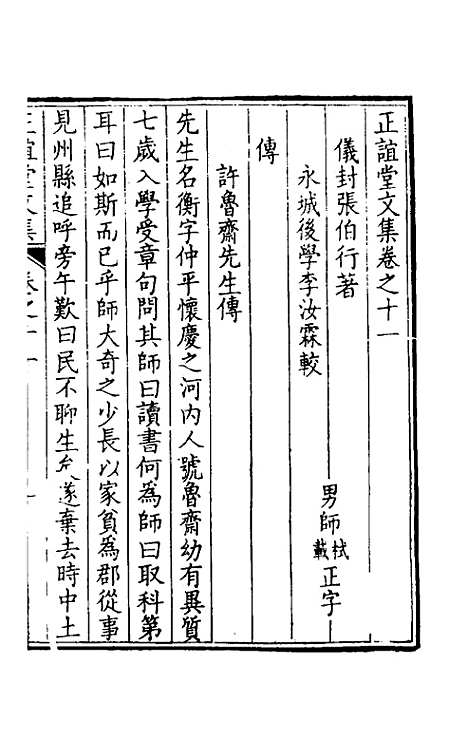 正誼堂文集卷之十一
儀封張伯行著
男師栻載正字
永城後學李汝霖較
傳
許魯齋先生傳
先生名衡字仲平懷慶之河内人號魯齋幼有異質
七歲入學受章句問其師曰讀書何為師曰取科第
耳曰如斯而已乎師大奇之少長以家貧為郡從事
見州縣追呼旁午歎曰民不聊生矣遂棄去時中土
正誼堂文集 卷之十一